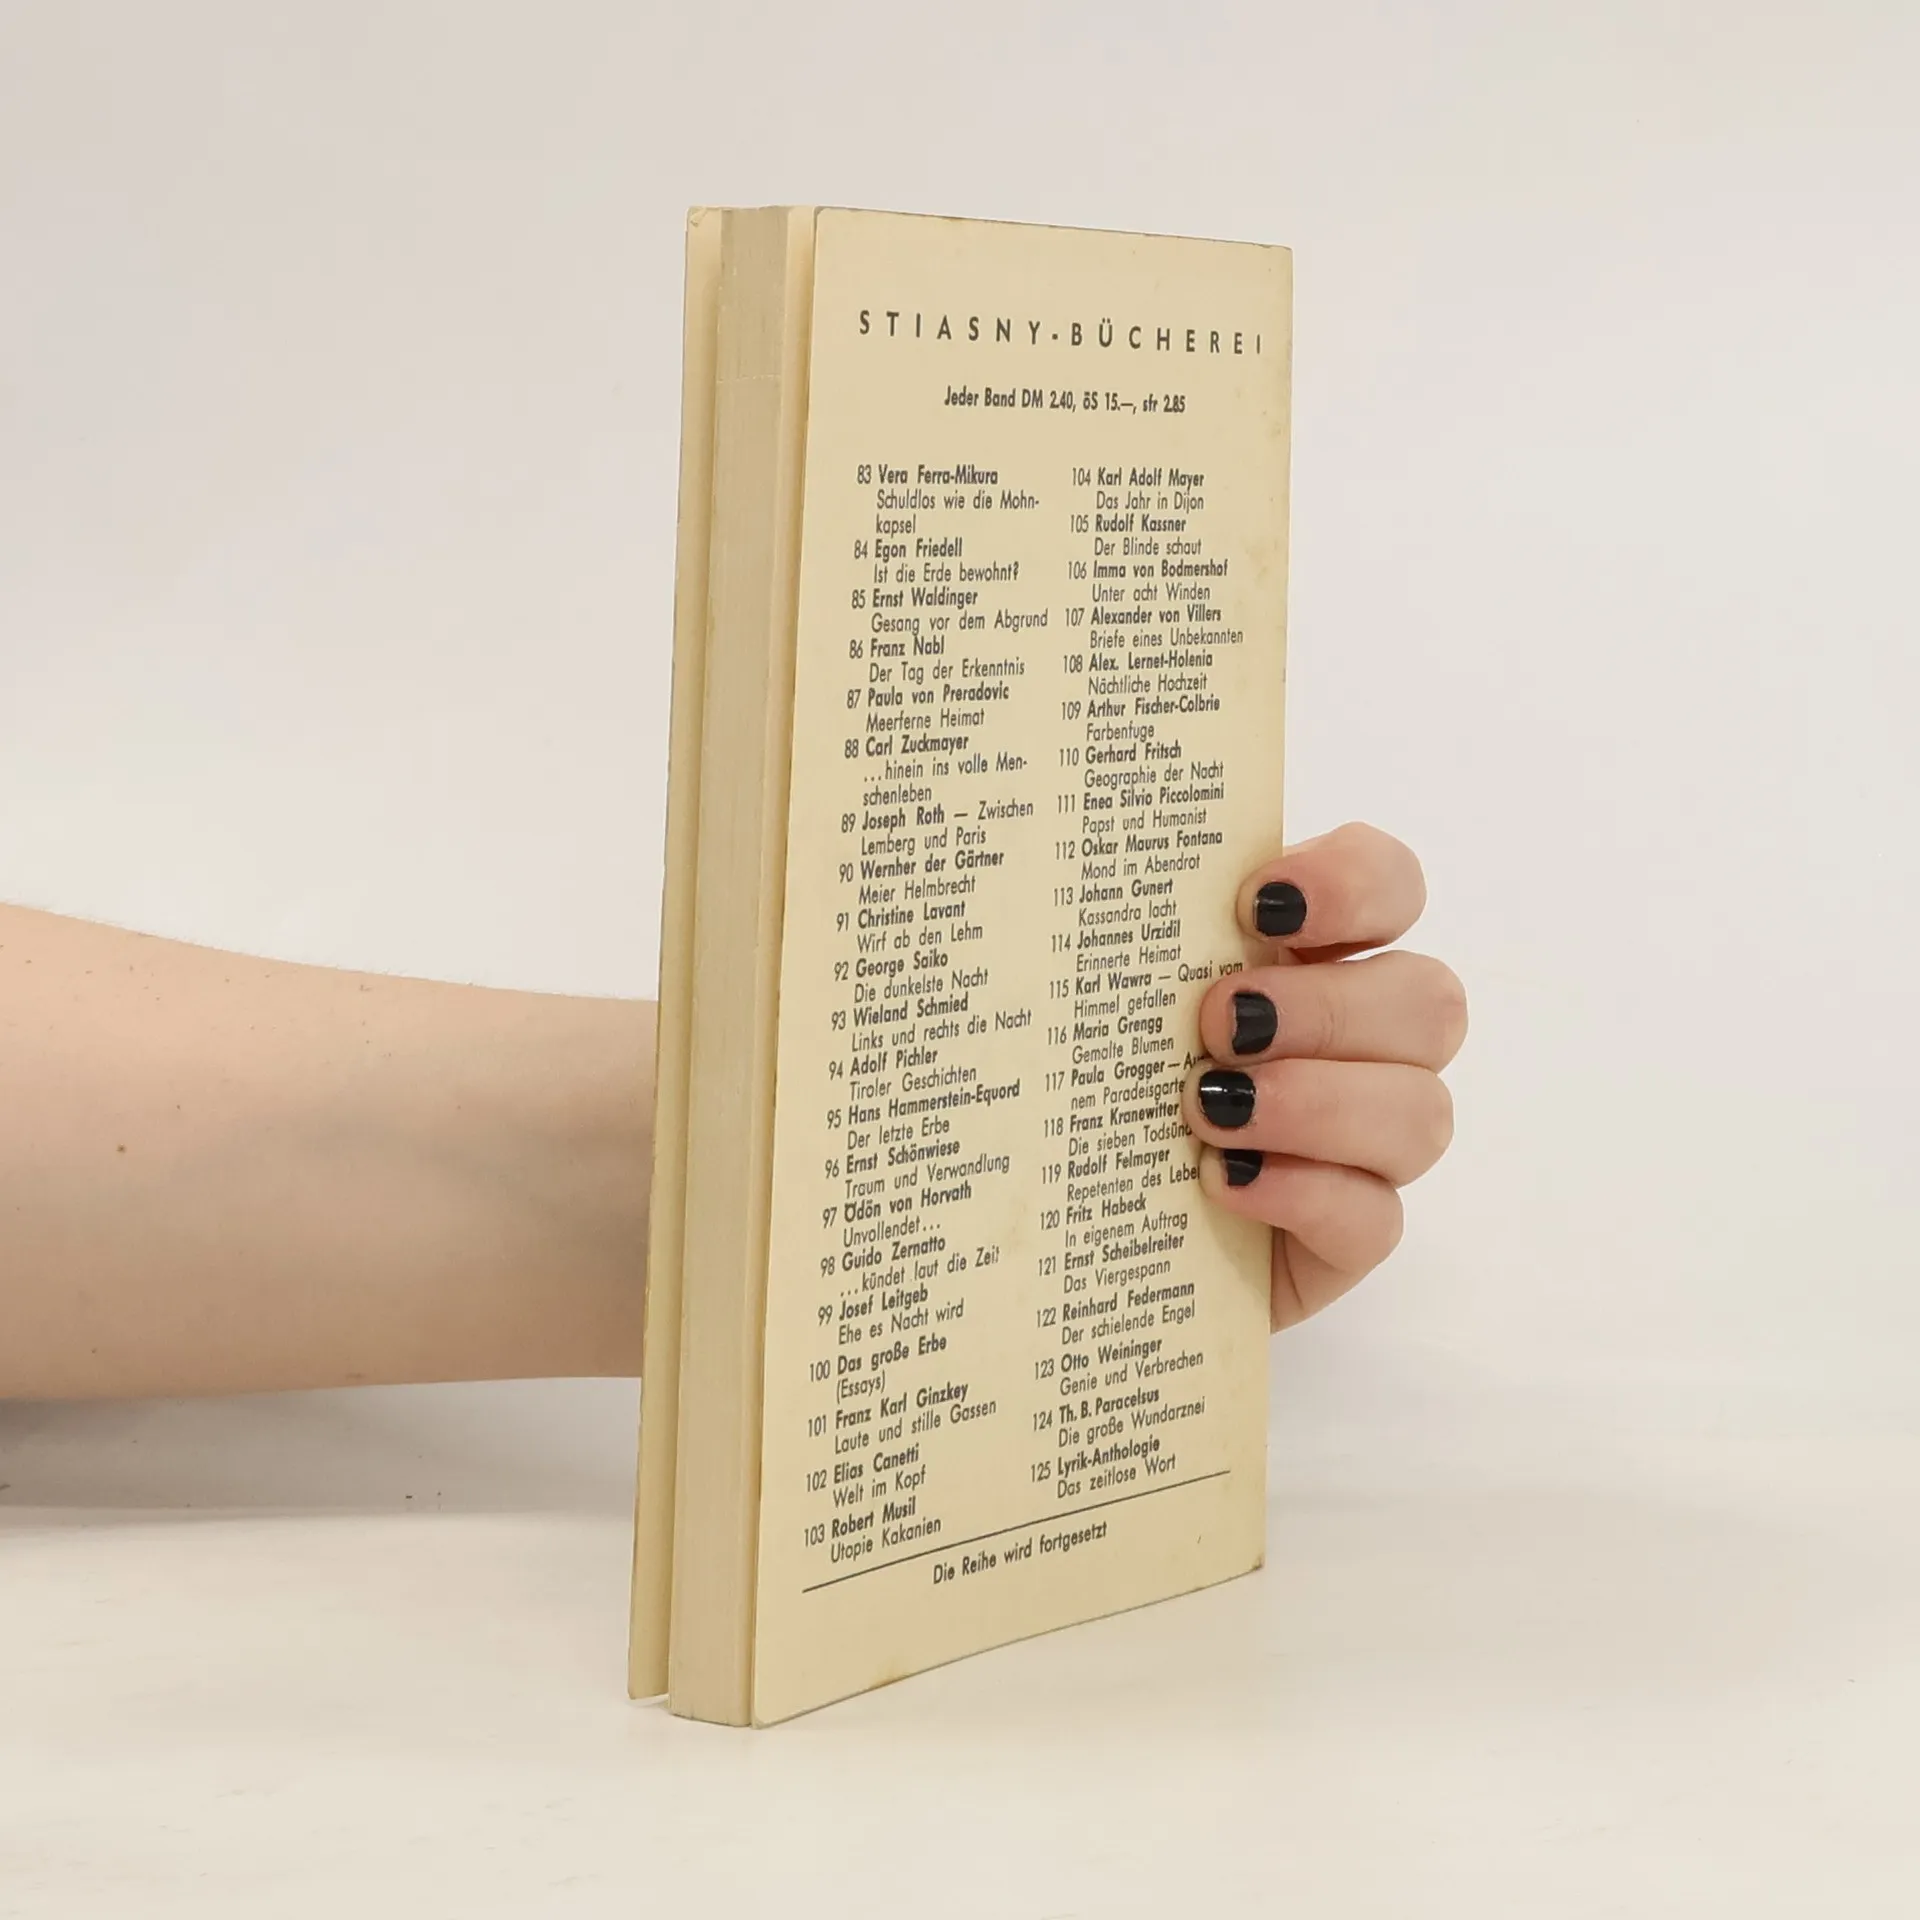 STIASNY-BÜCHEREI
Jeder Band DM 2.40, öS 15.—, sfr 2.85
83 Vera Ferra-Mikura
Schuldlos wie die Mohn-
kapsel
84 Egon Friedell
Ist die Erde bewohnt?
85 Ernst Waldinger
Gesang vor dem Abgrund
86 Franz Nabl
Der Tag der Erkenntnis
87 Paula von Preradovic
Meerferne Heimat
88 Carl Zuckmayer
...hinein ins volle Men-
schenleben
89 Joseph Roth — Zwischen
Lemberg und Paris
90 Wernher der Gärtner
Meier Helmbrecht
91 Christine Lavant
Wirf ab den Lehm
92 George Saiko
Die dunkelste Nacht
93 Wieland Schmied
Links und rechts die Nacht
94 Adolf Pichler
Tiroler Geschichten
95 Hans Hammerstein-Equord
Der letzte Erbe
96 Ernst Schönwiese
Traum und Verwandlung
97 Ödön von Horvath
Unvollendet...
98 Guido Zernatto
...kündet laut die Zeit
99 Josef Leitgeb
Ehe es Nacht wird
100 Das große Erbe
(Essays)
101 Franz Karl Ginzkey
Laute und stille Gassen
102 Elias Canetti
Welt im Kopf
103 Robert Musil
Utopie Kakanien
104 Karl Adolf Mayer
Das Jahr in Dijon
105 Rudolf Kassner
Der Blinde schaut
106 Imma von Bodmershof
Unter acht Winden
107 Alexander von Villers
Briefe eines Unbekannten
108 Alex. Lernet-Holenia
Nächtliche Hochzeit
109 Arthur Fischer-Colbrie
Farbenfuge
110 Gerhard Fritsch
Geographie der Nacht
111 Enea Silvio Piccolomini
Papst und Humanist
112 Oskar Maurus Fontana
Mond im Abendrot
113 Johann Gunert
Kassandra lacht
114 Johannes Urzidil
Erinnerte Heimat
115 Karl Wawra — Quasi vom
Himmel gefallen
116 Maria Grengg
Gemalte Blumen
117 Paula Grogger —
nem Paradeisgarte
118 Franz Kranewitter
Die sieben Todsün
119 Rudolf Felmayer
Repetenten des Lebe
120 Fritz Habeck
In eigenem Auftrag
121 Ernst Scheibelreiter
Das Viergespann
122 Reinhard Federmann
Der schielende Engel
123 Otto Weininger
Genie und Verbrechen
124 Th. B. Paracelsus
Die große Wundarznei
125 Lyrik-Anthologie
Das zeitlose Wort
Die Reihe wird fortgesetzt